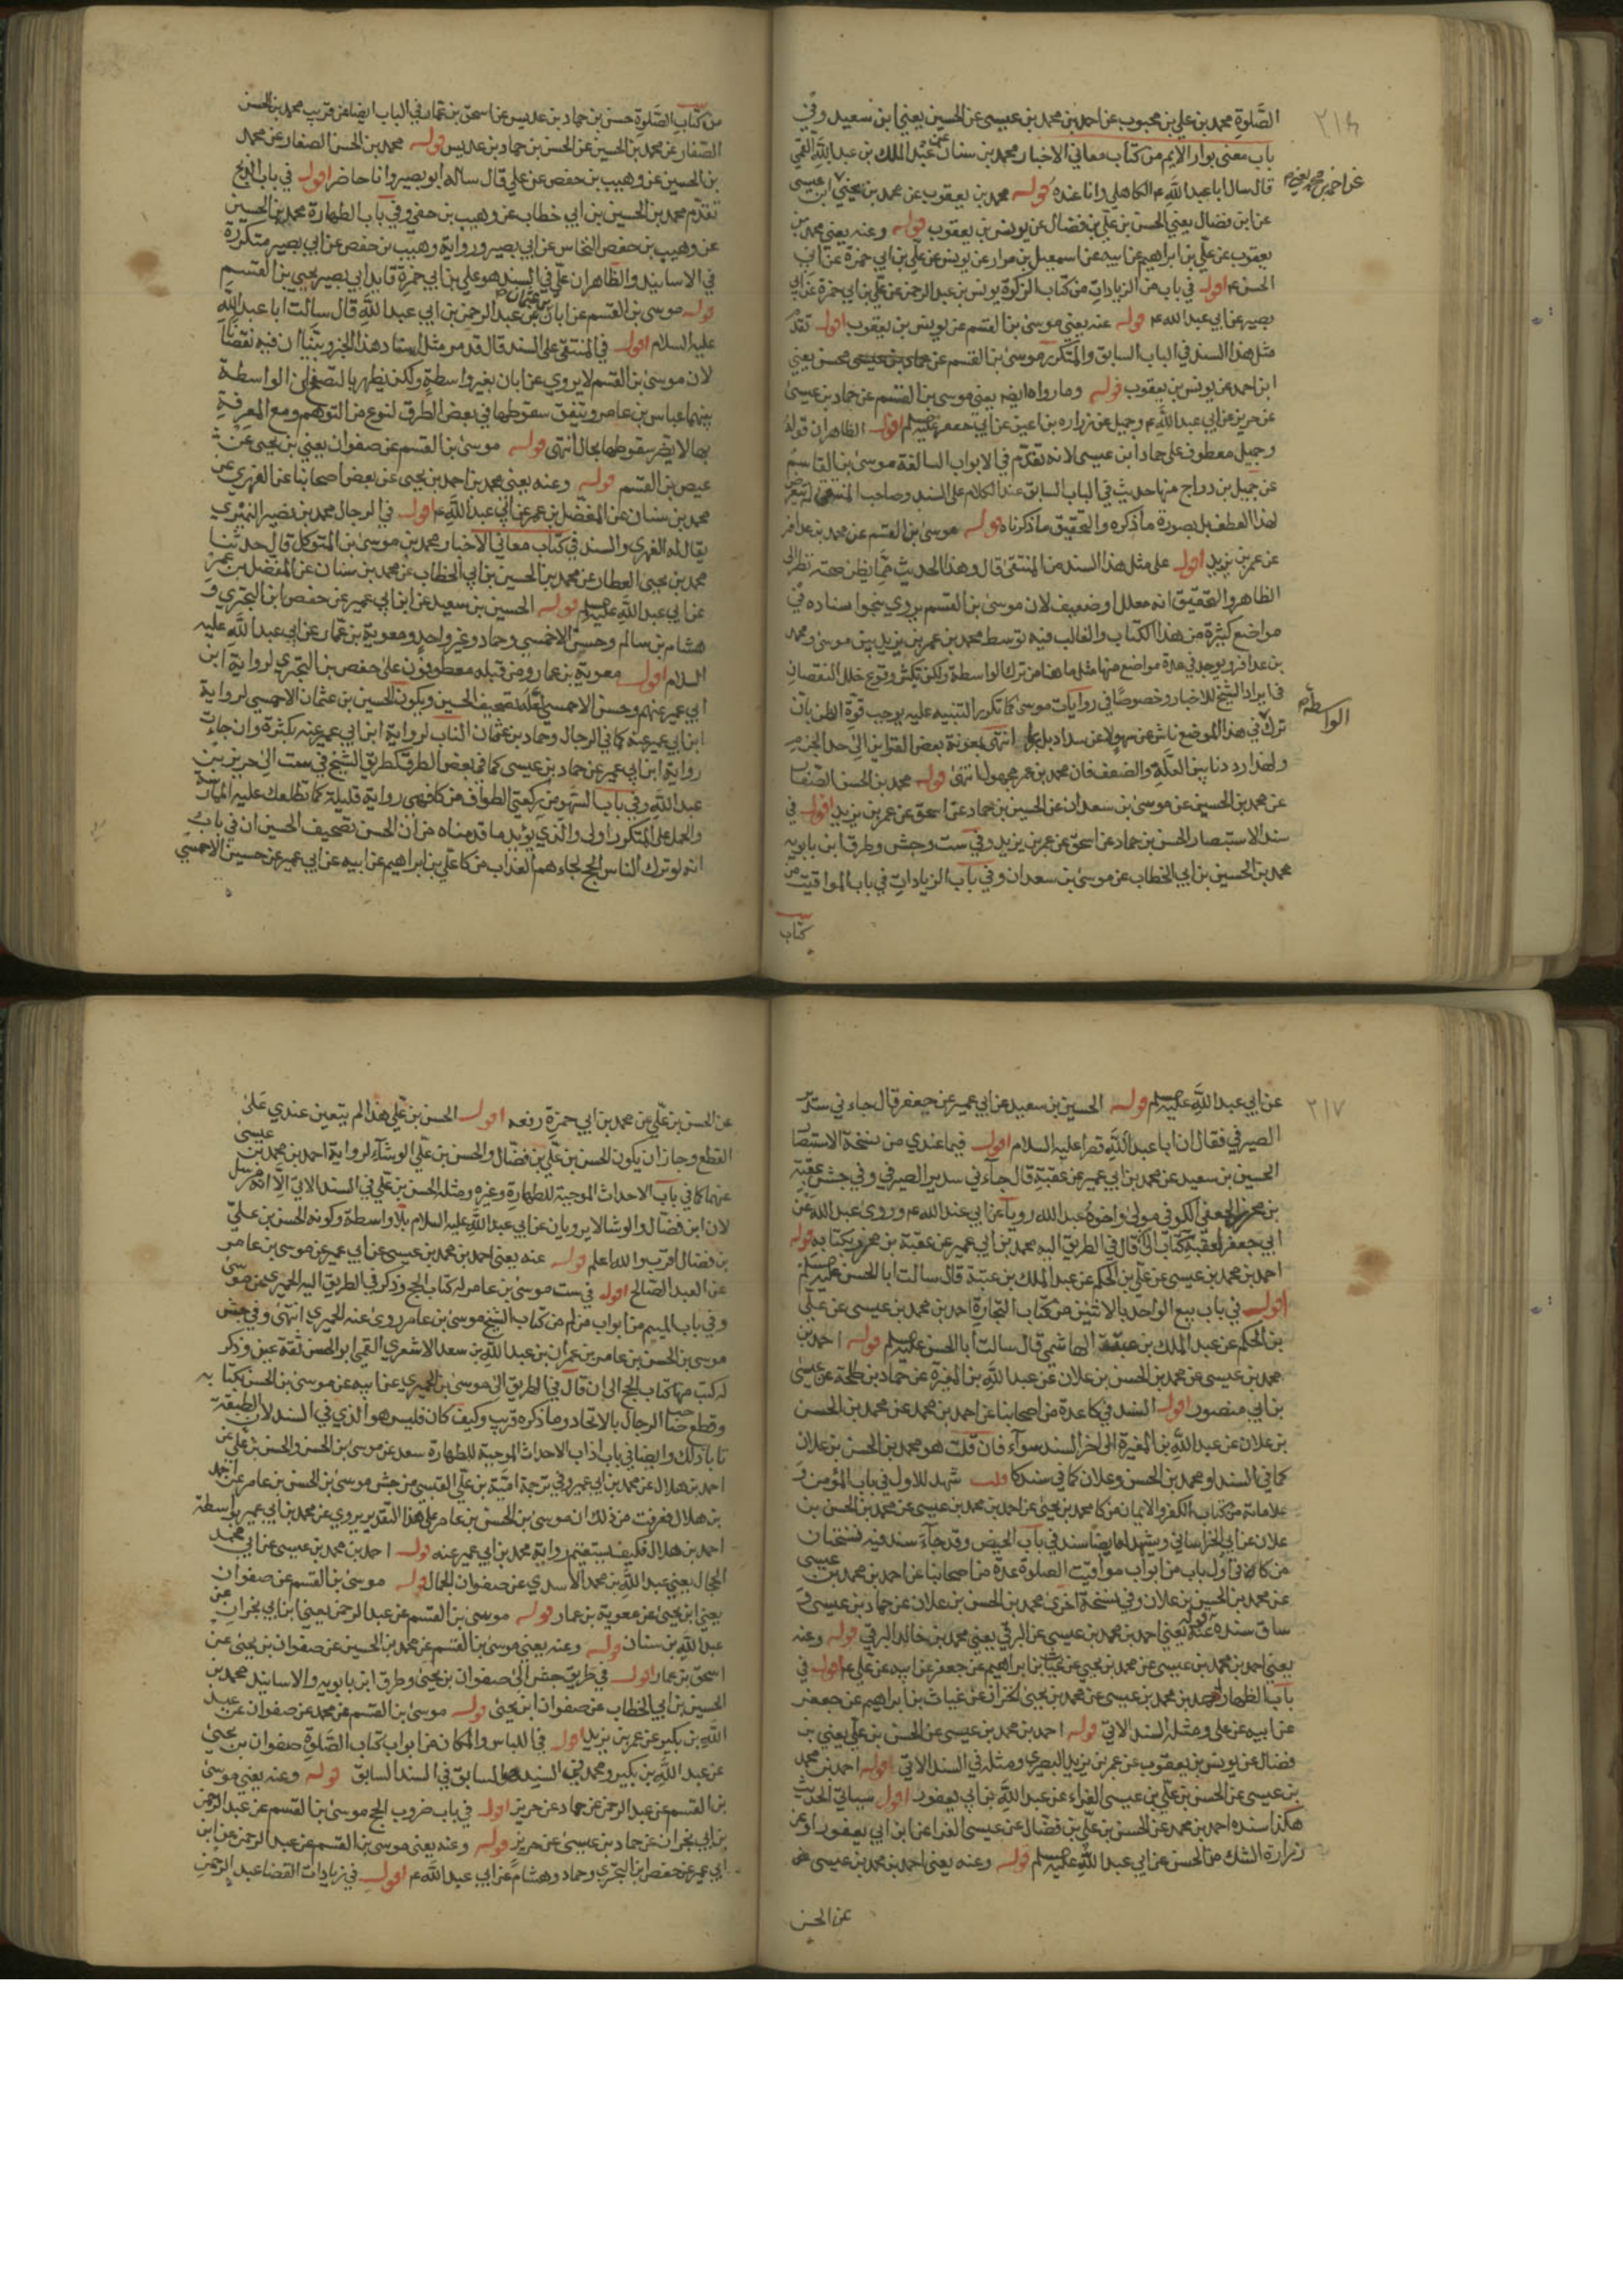 ٢١٤
الصَّلوة محمد بن علي بن محبوب عن احمد بن محمد بن عيسى عن الحسين يعني ابن سعيد وفي
باب معنى بوار الايم من كتاب معاني الاخبار محمد بن سنان عن عبد الملك بن عبد الله القمي
قال سال ابا عبد الله ع الكاهلي وانا عنده قوله محمد بن يعقوب عن محمد بن يحيى
عن احمد بن محمد يعني ابن عيسى
عن ابن فضال يعني الحسن بن علي بن فضال عن يونس بن يعقوب قوله وعنه يعني محمد بن
يعقوب عن علي بن ابراهيم عن ابيه عن اسمعيل بن مرار عن يونس عن علي بن ابي حمزة عن ابي
الحسن ع اقول في باب من الزيادات من كتاب الزكوة يونس بن عبد الرحمن عن علي بن ابي حمزة عن ابي
بصير عن ابي عبد الله ع قوله عنه يعني موسى بن القسم عن يونس بن يعقوب اقول تقدم
مثل هذا السند في الباب السابق والمتكرر موسى بن القسم عن محسن يعني
ابن احمد عن يونس بن يعقوب قوله وما رواه ايضا يعني موسى بن القسم عن حماد بن عيسى
عن حريز عن ابي عبد الله ع وجميل عن زراره بن اعين عن ابي جعفر عليه السلم اقول الظاهر ان قوله
وجميل معطوف على حماد ابن عيسى لانه تقدم في الابواب السالفة موسى بن القاسم
عن جميل بن دراج منها حديث في الباب السابق عند الكلام على السند وصاحب المنتقى لم يتعرض
لهذا العطف بل بصورة ما ذكره والتحقيق ما ذكرناه قوله موسى بن القسم عن محمد بن عذافر
عن عمر بن يزيد اقول على مثل هذا السند من المنتقى قال وهذا الحديث مما يظن صحته نظرا الى
الظاهر والتحقيق انه معلل او ضعيف لان موسى بن القسم يروي بنحو اسناده في
مواضع كثيرة من هذا الكتاب والغالب فيه توسط محمد بن عمر بن يزيد بين موسى ومحمد
بن عذافر ويوجد في عدة مواضع منها مثل ما هنا من ترك الواسطة ولكن تكثر وقوع خلل النقصان
في ايراد الشيخ للاخبار وخصوصا في روايات موسى كما تكرر التنبيه عليه يوجب قوة الظن بان
ترك الواسطة في هذا الموضع ناش عن سهو لا عن سداد بل انتهى بمعونة بعض القراين الى حد الجزم
ولهذا رددنا بين العلة والضعف فان محمد بن عمر مجهول انتهى قوله محمد بن الحسن الصفار
عن محمد بن الحسين عن موسى بن سعدان عن الحسين بن حماد عن اسحق عن عمر بن يزيد اقول في
سند الاستبصار الحسن بن حماد عن اسحق عن عمر بن يزيد وفي ست وجش وطرق ابن بابويه
محمد بن الحسين بن ابي الخطاب عن موسى بن سعدان وفي باب الزيادات في باب المواقيت من
كتاب
من كتاب الصلوة حسن بن حماد بن عديس عن اسحق بن عمار في الباب ايضا عن قريب محمد بن الحسن
الصفار عن محمد بن الحسين عن الحسن بن حماد بن عديس قوله محمد بن الحسن الصفار عن محمد
بن الحسين عن وهيب بن حفص عن علي قال ساله ابو بصير وانا حاضر اقول في باب الذبح
تقدم محمد بن الحسين بن ابي خطاب عن وهيب بن حفص وفي باب الطهارة محمد بن الحسين
عن وهيب بن حفص النخاس عن ابي بصير ورواية وهيب بن حفص عن ابي بصير متكررة
في الاسانيد والظاهر ان علي في السند هو علي بن ابي حمزة قايد ابي بصير يحيى بن القسم
قوله موسى بن القسم عن ابان بن عثمان عن عبد الرحمن بن ابي عبد الله قال سالت ابا عبد الله
عليه السلام اقول في المنتقى على السند قال قد مر مثل اسناد هذا الخبر وبينا ان فيه نقصانا
لان موسى بن القسم لا يروي عن ابان بغير واسطة ولكن يظهر بالتصفح ان الواسطة
بينهما عباس بن عامر ويتفق سقوطها في بعض الطرق لنوع من التوهم ومع المعرفة
بها لا يضر سقوطها بحال انتهى قوله موسى بن القسم عن صفوان يعني بن يحيى عن
عيص بن القسم قوله وعنه يعني محمد بن احمد بن يحيى عن بعض اصحابنا عن الفهري عن
محمد بن سنان عن المفضل بن عمر عن ابي عبد الله ع اقول في الرجال محمد بن نصير النميري
يقال له الفهري والسند في كتاب معاني الاخبار محمد بن موسى بن المتوكل قال حدثنا
محمد بن يحيى العطار عن محمد بن الحسين بن ابي الخطاب عن محمد بن سنان عن المفضل بن عمر
عن ابي عبد الله عليه السلم قوله الحسين بن سعيد عن ابن ابي عمير عن حفص ابن البختري و
هشام بن سالم وحسين الاحمسي وحماد وغير واحد ومعوية بن عمار عن ابي عبد الله عليه
السلام اقول معوية بن عمار ومن قبله معطوفون على حفص بن البختري لرواية ابن
ابي عمير عنهم وحسن الاحمسي لعله تصحيف الحسين ويكون الحسين بن عثمان الاحمسي لرواية
ابن ابي عمير عنه كما في الرجال وحماد بن عثمان الناب لرواية ابن ابي عمير عنه بكثرة وان جاءت
رواية ابن ابي عمير عن حماد بن عيسى كما في بعض الطرق كطريق الشيخ في ست الى حريز بن
عبد الله وفي باب السهو من ركعتي الطواف من كا فهي رواية قليلة كما تطلعك عليه الممارسة
والحمل على المتكرر اولى والذي يؤيد ما قدمناه من ان الحسن تصحيف الحسين ان في باب
انه لو ترك الناس الحج لجاءهم العذاب من كا علي بن ابراهيم عن ابيه عن ابي عمير عن حسين الاحمسي
٢١٧
عن ابي عبد الله عليه السلم قوله الحسين بن سعيد عن ابي عمير عن جعفر قال جاء ني سدير
الصيرفي فقال ان ابا عبد الله قرا عليه السلام اقول فيما عندي من نسخة الاستبصا
الحسين بن سعيد عن محمد بن ابي عمير عن عقبة قال جاءني سدير الصيرفي وفي جش عقبة
بن محرز الجعفي الكوفي مولى واخوه عبد الله رويا عن ابي عبد الله ع وروى عبد الله عن
ابي جعفر لعقبة كتاب الى ان قال في الطريق اليه محمد بن ابي عمير عن عقبة بن محرز بكتابه قوله
احمد بن محمد بن عيسى عن علي بن الحكم عن عبد الملك بن عتبة قال سالت ابا الحسن عليه السلم
اقول في باب بيع الواحد بالاثنين من كتاب التجارة احمد بن محمد بن عيسى عن علي
بن الحكم عن عبد الملك بن عتبة الهاشمي قال سالت ابا الحسن عليه السلم قوله احمد بن
محمد بن عيسى عن محمد بن الحسن بن علان عن عبد الله بن المغيرة عن حماد بن طلحة عن عيسى
بن ابي منصور اقول السند في كا عدة من اصحابنا عن احمد بن محمد عن محمد بن الحسن
بن علان عن عبد الله بن المغيرة الى اخر السند سوآء فان قلت هو محمد بن الحسن بن علان
كما في السند او محمد بن الحسن وعلان كما في سند كا قلت شهد للاول في باب المؤمن و
علاماته من كتاب الكفر والايمان من كا محمد بن يحيى عن احمد بن محمد بن عيسى عن محمد بن الحسن بن
علان عن ابي الخراساني ويشهد لها ايضا سند في باب الحيض وقد جآء سند فيه نسختان
من كا كا في اول باب من ابواب مواقيت الصلوة عدة من اصحابنا عن احمد بن محمد بن عيسى
عن محمد بن الحسين بن علان وفي نسخة اخرى محمد بن الحسن بن علان عن حماد بن عيسى و
ساق سنده قوله عنه يعني احمد بن محمد بن عيسى عن البرقي يعني محمد بن خالد البرقي قوله وعنه
يعني احمد بن محمد بن عيسى عن محمد بن يحيى عن غياث بن ابراهيم عن جعفر عن ابيه عن علي ع اقول في
باب الطهارة احمد بن محمد بن عيسى عن محمد بن يحيى الخزاز عن غياث بن ابراهيم عن جعفر
عن ابيه عن علي ومثله السند الاتي قوله احمد بن محمد بن عيسى عن الحسن بن علي يعني بن
فضال عن يونس بن يعقوب عن عمر بن يزيد البصري ومثله في السند الاتي قوله احمد بن محمد
بن عيسى عن الحسن بن علي بن عيسى الفراء عن عبد الله بن ابي يعفور اقول سياتي الحديث
هكذا سنده احمد بن محمد عن الحسن بن علي بن فضال عن عيسى الفرا عن ابن ابي يعفور او عن
زرارة الشك من الحسن عن ابي عبد الله عليه السلم قوله وعنه يعني احمد بن محمد بن عيسى
عن الحسن
عن الحسن بن علي عن محمد بن ابي حمزة رفعه اقول الحسن بن علي هذا لم يتعين عندي على
القطع وجاز ان يكون الحسن بن علي بن فضال والحسن بن علي الوشآء لرواية احمد بن محمد بن عيسى
عنهما كما في باب الاحداث الموجبة للطهارة وغيره ومثله الحسن بن علي في السند الاتي الا انه مرسل
لان ابن فضال والوشا لا يرويان عن ابي عبد الله عليه السلام بلا واسطة وكونه الحسن بن علي
بن فضال اقرب والله اعلم قوله عنه يعني احمد بن محمد بن عيسى عن ابي عمير عن موسى بن عامر
عن العبد الصالح اقول في ست موسى بن عامر له كتاب الحج وذكر في الطريق اليه الحميري عن موسى
وفي باب الميم من ابواب من لم من كتاب الشيخ موسى بن عامر روى عنه الحميري انتهى وفي جش
موسى بن الحسن بن عامر بن عمران بن عبد الله بن سعد الاشعري القمي ابو الحسن ثقة عين وذكر
له كتب منها كتاب الحج الى ان قال في الطريق الى موسى بن الحميري عن ابيه عن موسى بن الحسن بكتابه
وقطع صاحب الرجال بالاتحاد وما ذكره قريب وكيف كان فليس هو الذي في السند لان الطبقة
تابا ذلك وايضا في باب اداب الاحداث الموجبة للطهارة سعد عن موسى بن الحسن والحسن بن علي عن
احمد بن هلال عن محمد بن ابي عمير وفي ترجمة امية بن علي القيسي من جش موسى بن الحسن بن عامر عن احمد
بن هلال فعرفت من ذلك ان موسى بن الحسن بن عامر على هذا التقدير يروي عن محمد بن ابي عمير بواسطة
احمد بن هلال فكيف يستقيم رواية محمد بن ابي عمير عنه قوله احمد بن محمد بن عيسى عن ابي محمد
الحجال يعني عبد الله بن محمد الاسدي عن صفوان الجمال قوله موسى بن القسم عن صفوان
يعني ابن يحيى عن معوية بن عمار قوله موسى بن القسم عن عبد الرحمن يعني ابن ابي نجران عن
عبد الله بن سنان قوله وعنه يعني موسى بن القسم عن محمد بن الحسين عن صفوان بن يحيى عن
اسحق بن عمار اقول في طريق جش الى صفوان بن يحيى وطرق ابن بابويه والاسانيد محمد بن
الحسين بن ابي الخطاب عن صفوان ابن يحيى قوله موسى بن القسم عن محمد عن صفوان عن عبد
الله بن بكير عن عمر بن يزيد اقول في اللباس والمكان من ابواب كتاب الصلوة صفوان بن يحيى
عن عبد الله بن بكير ومحمد في السند هو السابق في السند السابق قوله وعنه يعني موسى
بن القسم عن عبد الرحمن عن حماد عن حريز اقول في باب ضروب الحج موسى بن القسم عن عبد الرحمن
بن ابي نجران عن حماد بن عيسى عن حريز قوله وعنه يعني موسى بن القسم عن عبد الرحمن عن ابن
ابي عمير عن حفص ابن البختري وحماد وهشام عن ابي عبد الله ع اقول في زيادات القضا عبد الرحمن